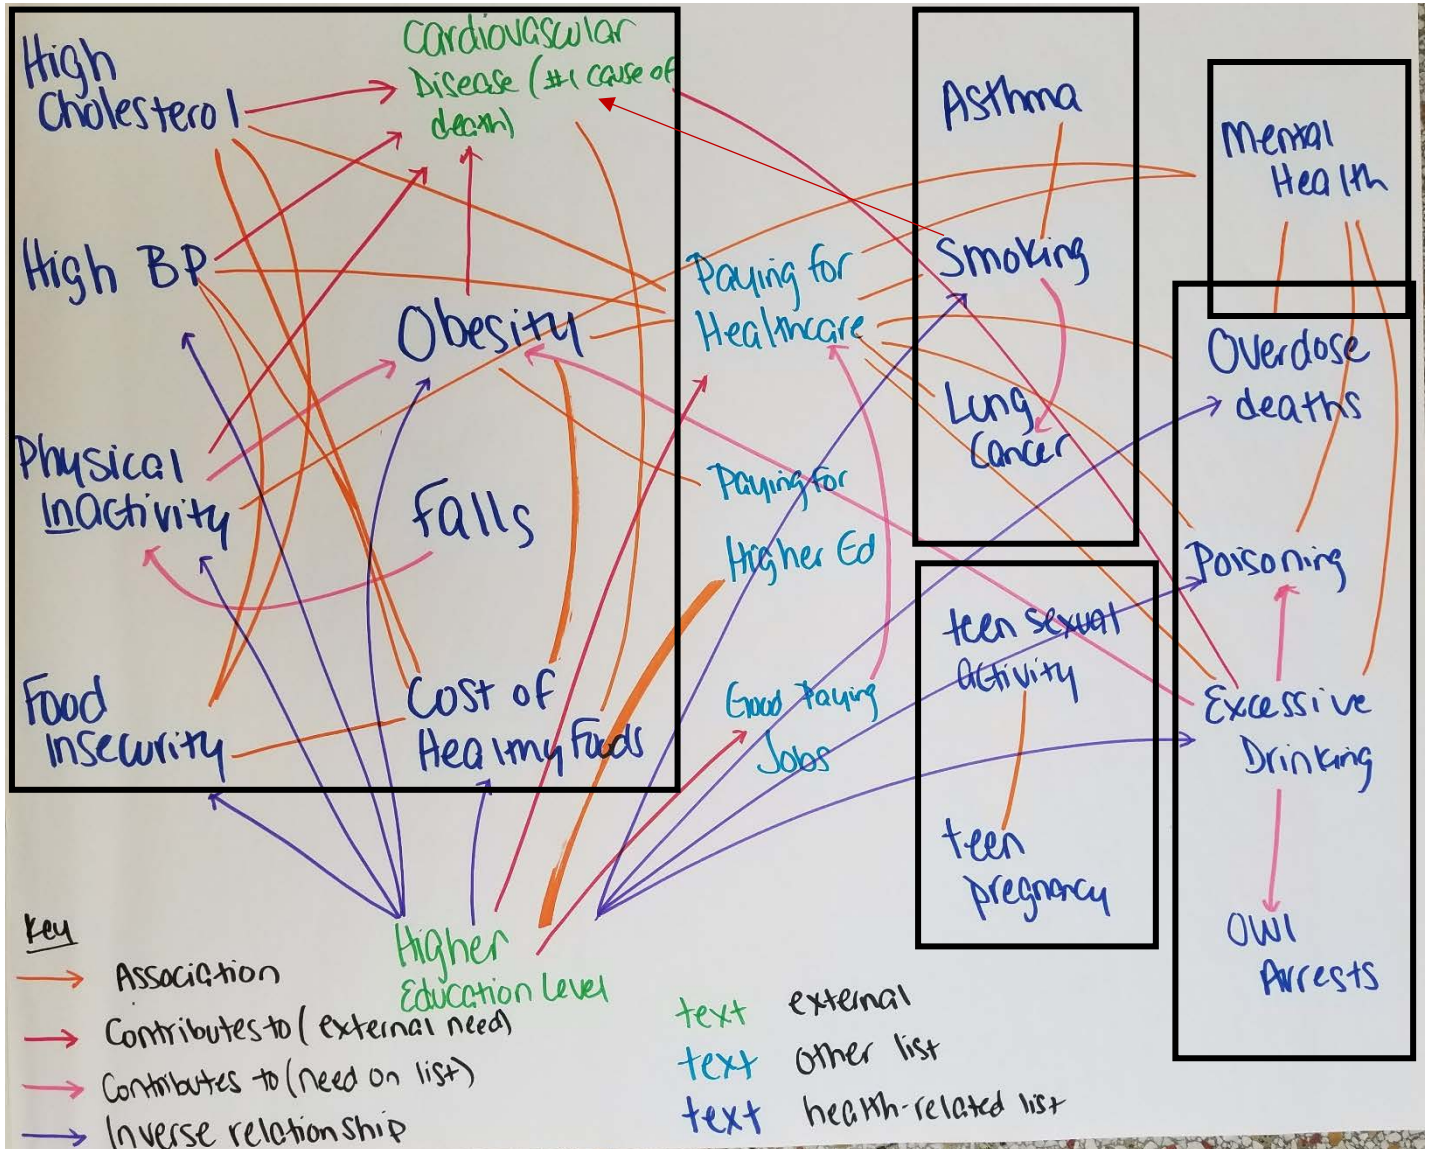 High
Cholesterol
Cardiovascular
Disease (#1 cause of
death)
High BP
Obesity
Physical
Inactivity
Falls
Food
Insecurity
Cost of
Healthy Foods
Paying for
Healthcare
Paying for
Higher Ed
Good Paying
Jobs
Asthma
Smoking
Lung
Cancer
teen sexual
activity
teen
pregnancy
Mental
Health
Overdose
deaths
Poisoning
Excessive
Drinking
OWI
Arrests
Higher
Education Level
Key
Association
Contributes to (external need)
Contributes to (need on list)
Inverse relationship
text external
text other list
text health-related list